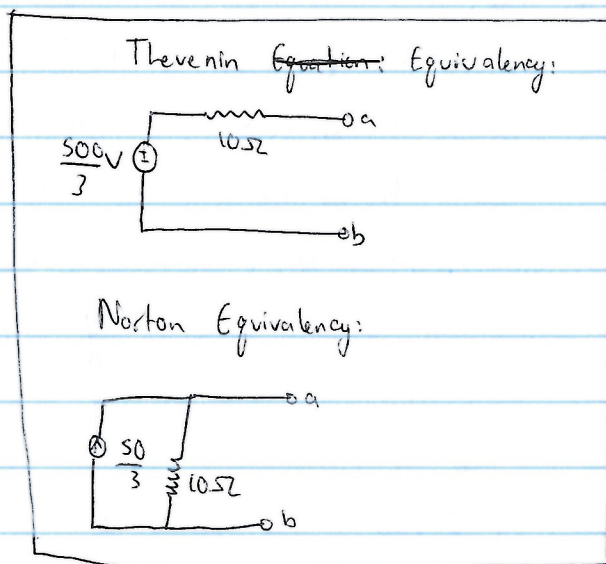 Thevenin Equation: Equivalency:
a
10Ω
500
3
V
b
Norton Equivalency:
a
50
3
10Ω
b